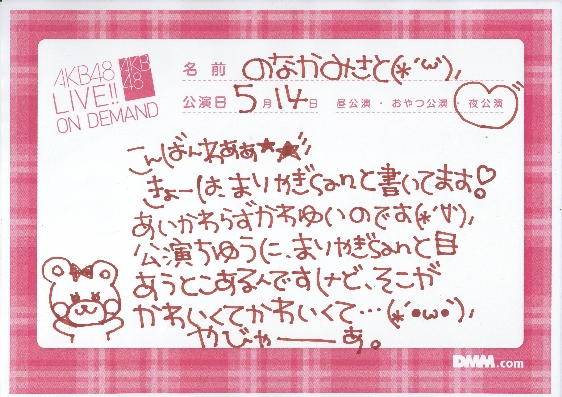 AKB48
LIVE!!
ON DEMAND
AKB
48
名前 のなかみさと(*´ω`),
公演日 5月14日 昼公演・おやつ公演・夜公演
こんばんわぁぁ★★
きょーは、まりやぎsanと書いてます♡
あいかわらずかわゆいのです(*´∀`),
公演ちゆうに、まりやぎsanと目
あうとこあるんですけど、そこが
かわいくてかわいくて…(*´●ω●`),
やびゃーーあ。
DMM.com